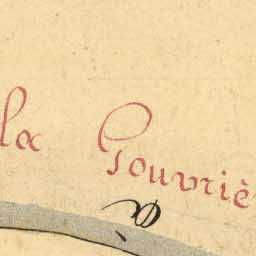 la Gouvriè